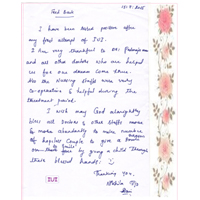 Feed Back
I have been tested positive after
my first attempt of IUI.
I am very thankful to Dr.
and all other doctors who are helped
us for our dream come true.
the Nursing staffs were very
co-operative & helpful during the
treatment period.
I wish may God almighty
bless all Doctors & other staffs more
to make abundantly to more number
of hopeless couple to give a
smile by giving a child through
there blessed hands.
Thanking you.
IUI